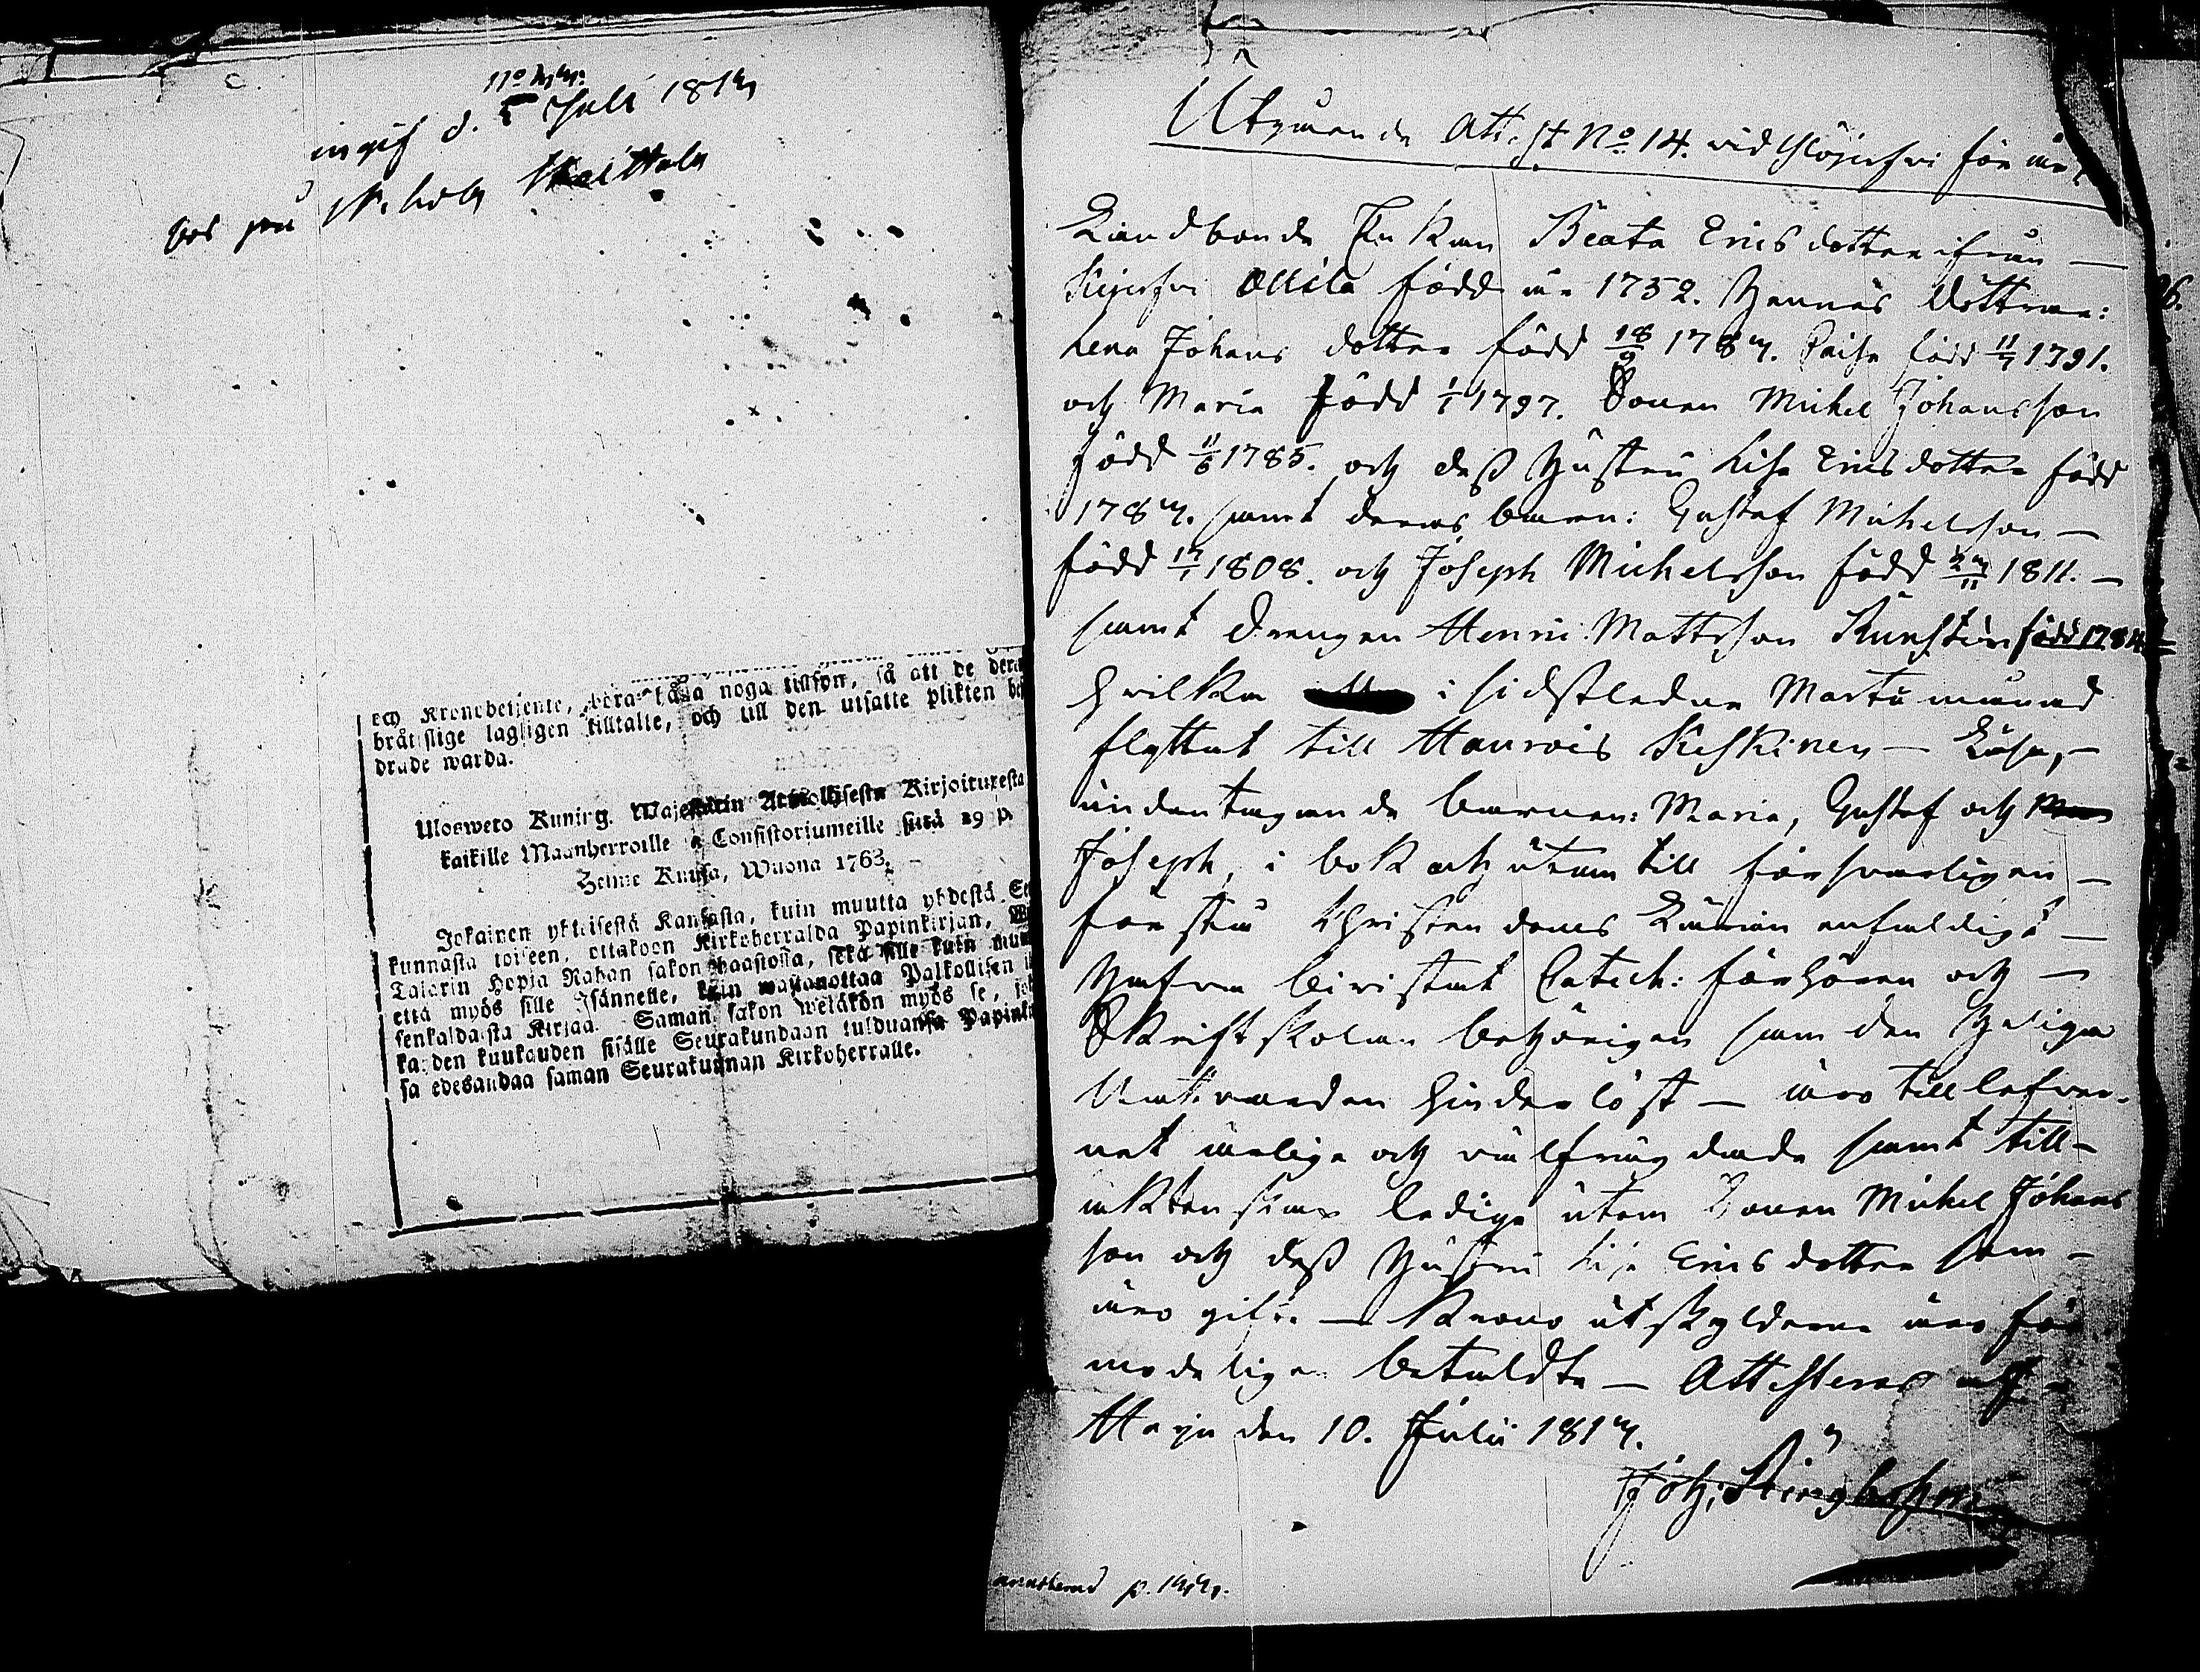 ingif d. 5 Juli 1817
och Kronobetjente, hafwa noga tillsyn, så att de
bråtslige lagligen tilltalte, och till den utsatte plikten
drade warda.
Ulosweto Kuning. Majestätin Armollisesta Kirjoituxesta
kaikille Maanherroille ja Consistoriumeille siitä 29 p.
Heinä Kuusa, Wuona 1763.
Jokainen yhteisestä Kansasta, kuin muutta yhdestä
kunnasta toiseen, ottakoon Kirkoherralda Papinkirjan,
Talarin Hopia Rahan sakon haastosta, sekä sille kuin
että myös sille Isännelle, kuin wastanottaa Palkollisen
senkaldaista Kirjaa. Saman sakon wetäkön myös se,
kahden kuukauden sisälle Seurakundaan tulduansa
sa edesandaa saman Seurakunnan Kirkoherralle.
Utgående Attest No 14. vid
Landbonde Enkan Beata Ericsdotter ifrån —
Ollila född år 1752. Hennes Döttrar:
Lena Johansdotter född 18/9 1787. Caisa född 11/7 1791.
och Maria född 1/1 1797. Sonen Michel Johansson
född 11/6 1785. och dess Hustru Lisa Ericsdotter född
1787. samt deras barn: Gustaf Michelsson —
född 17/1 1808. och Joseph Michelsson född 27/11 1811. —
samt drengen Henric Mattsson född 1784
Hvilka i sidstledne Martii månad
flyttat till Keskinen — Läsa, —
undantagande barnen: Maria, Gustaf och
Joseph, i bok och utom till försvarligen —
förstå Christendoms Läran enfaldigt —
Hafva bivistat Catech: förhören och —
Skriftskolan behörigen samt den Heliga
Nattvarden hinderlöst — äro till lefver-
net ärlige och välfrägdade samt till
äktenskap ledige utom Sonen Michel Johans
son och dess Hustru Lisa Ericsdotter som —
äro gifte. — Krono utskylderne äro för
modeligen betaldte — Attesteras af
den 10. Julii 1817.